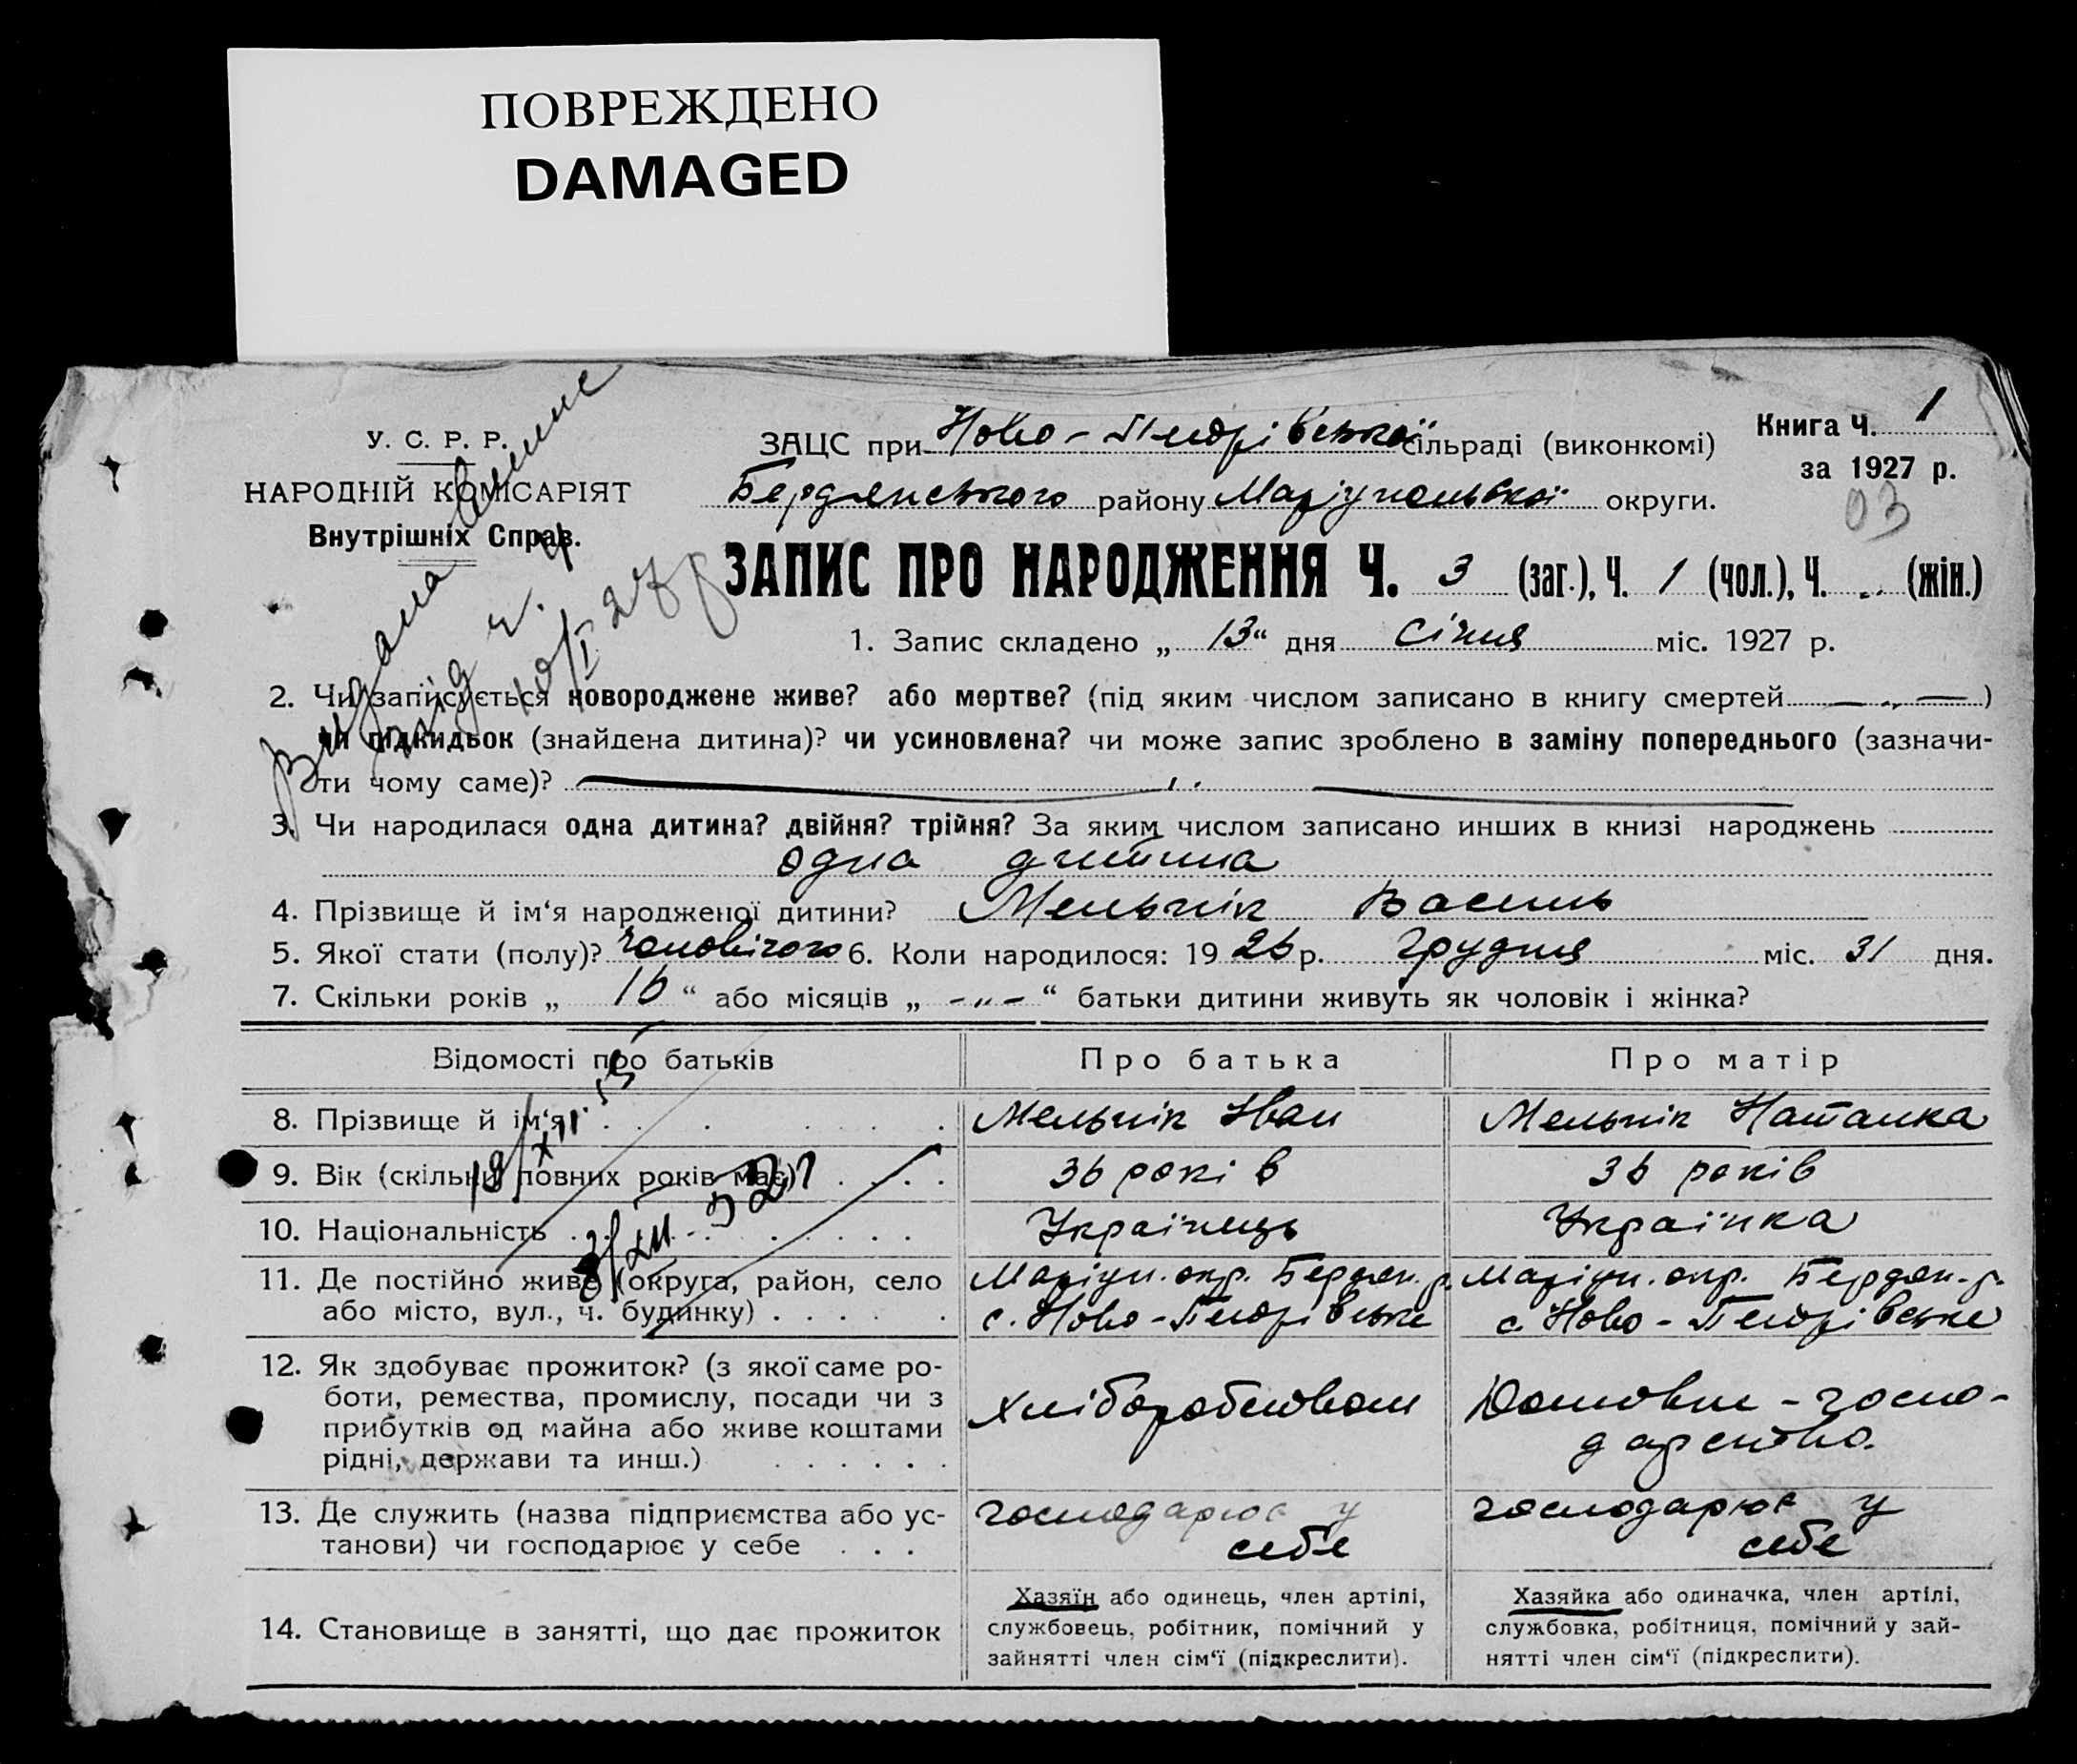 ПОВРЕЖДЕНО
DAMAGED
У. С. Р. Р.
НАРОДНІЙ КОМІСАРІЯТ
Внутрішніх Справ.
ЗАЦС при Ново-Петрівської сільраді (виконкомі)
Бердянського району Маріупольської округи.
Книга Ч. 1
за 1927 р.
03
Видана
ЗАПИС ПРО НАРОДЖЕННЯ Ч. 3 (заг.), Ч. 1 (чол.), Ч. „ (жін.)
1. Запис складено „ 13 “ дня Січня міс. 1927 р.
2. Чи записується новороджене живе? або мертве? (під яким числом записано в книгу смертей — „ —)
чи підкидьок (знайдена дитина)? чи усиновлена? чи може запис зроблено в заміну попереднього (зазначи-
ти чому саме)?
3. Чи народилася одна дитина? двійня? трійня? За яким числом записано инших в книзі народжень
одна дитина
4. Прізвище й ім‘я народженої дитини? Мельнік Василь
5. Якої стати (полу)? чоловічого 6. Коли народилося: 1926 р. Грудня міс. 31 дня.
7. Скільки років „ 16 “ або місяців „ -„- “ батьки дитини живуть як чоловік і жінка?
Відомості про батьків
Про батька
Про матір
8. Прізвище й ім‘я
Мельнік Іван
Мельнік Наталка
9. Вік (скільки повних років має)?
36 років
36 років
10. Національність
Українець
Українка
11. Де постійно живе (округа, район, село
або місто, вул., ч. будинку)
Маріуп. окр. Бердян. р.
с. Ново-Петрівське
Маріуп. окр. Бердян. р.
с. Ново-Петрівське
12. Як здобуває прожиток? (з якої саме ро-
боти, ремества, промислу, посади чи з
прибутків од майна або живе коштами
рідні, держави та инш.)
Хліборобством
Домовим-госпо-
дарством
13. Де служить (назва підприємства або ус-
танови) чи господарює у себе
господарює у
себе
господарює у
себе
14. Становище в занятті, що дає прожиток
Хазяїн або одинець, член артілі,
службовець, робітник, помічний у
зайнятті член сім‘ї (підкреслити).
Хазяйка або одиначка, член артілі,
службовка, робітниця, помічний у зай-
нятті член сім‘ї (підкреслити).